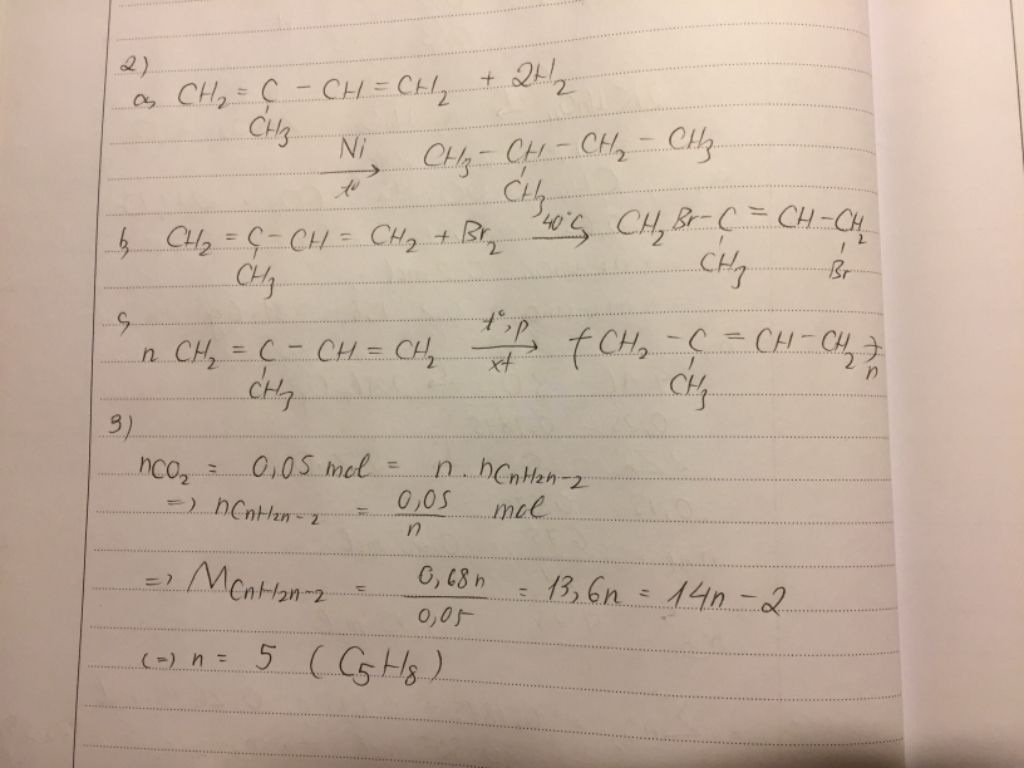 2)
a, CH2 = C - CH = CH2 + 2H2
CH3
Ni
→ CH3 - CH - CH2 - CH3
t° CH3
b, CH2 = C - CH = CH2 + Br2 40°C → CH2Br - C = CH - CH2
CH3 CH3 Br
c,
n CH2 = C - CH = CH2 t°, p → xt ( CH2 - C = CH - CH2 )n
CH3 CH3
3)
nCO2 = 0,05 mol = n . nCnH2n-2
=> nCnH2n-2 = 0,05/n mol
=> MCnH2n-2 = 0,68n/0,05 = 13,6n = 14n - 2
(=) n = 5 ( C5H8 )